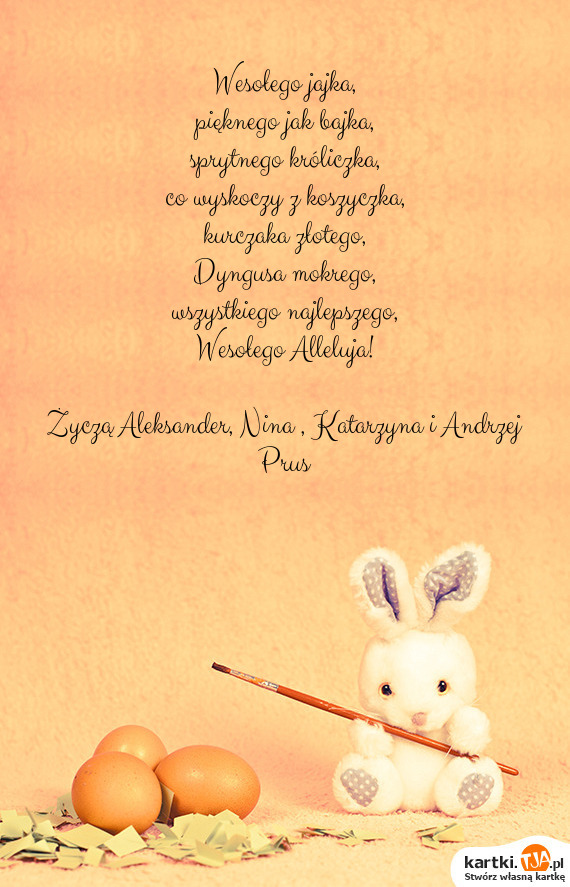 Wesołego jajka,
pięknego jak bajka,
sprytnego króliczka,
co wyskoczy z koszyczka,
kurczaka złotego,
Dyngusa mokrego,
wszystkiego najlepszego,
Wesołego Alleluja!
Życzą Aleksander, Nina , Katarzyna i Andrzej
Prus
kartki.TJA.pl
Stwórz własną kartkę